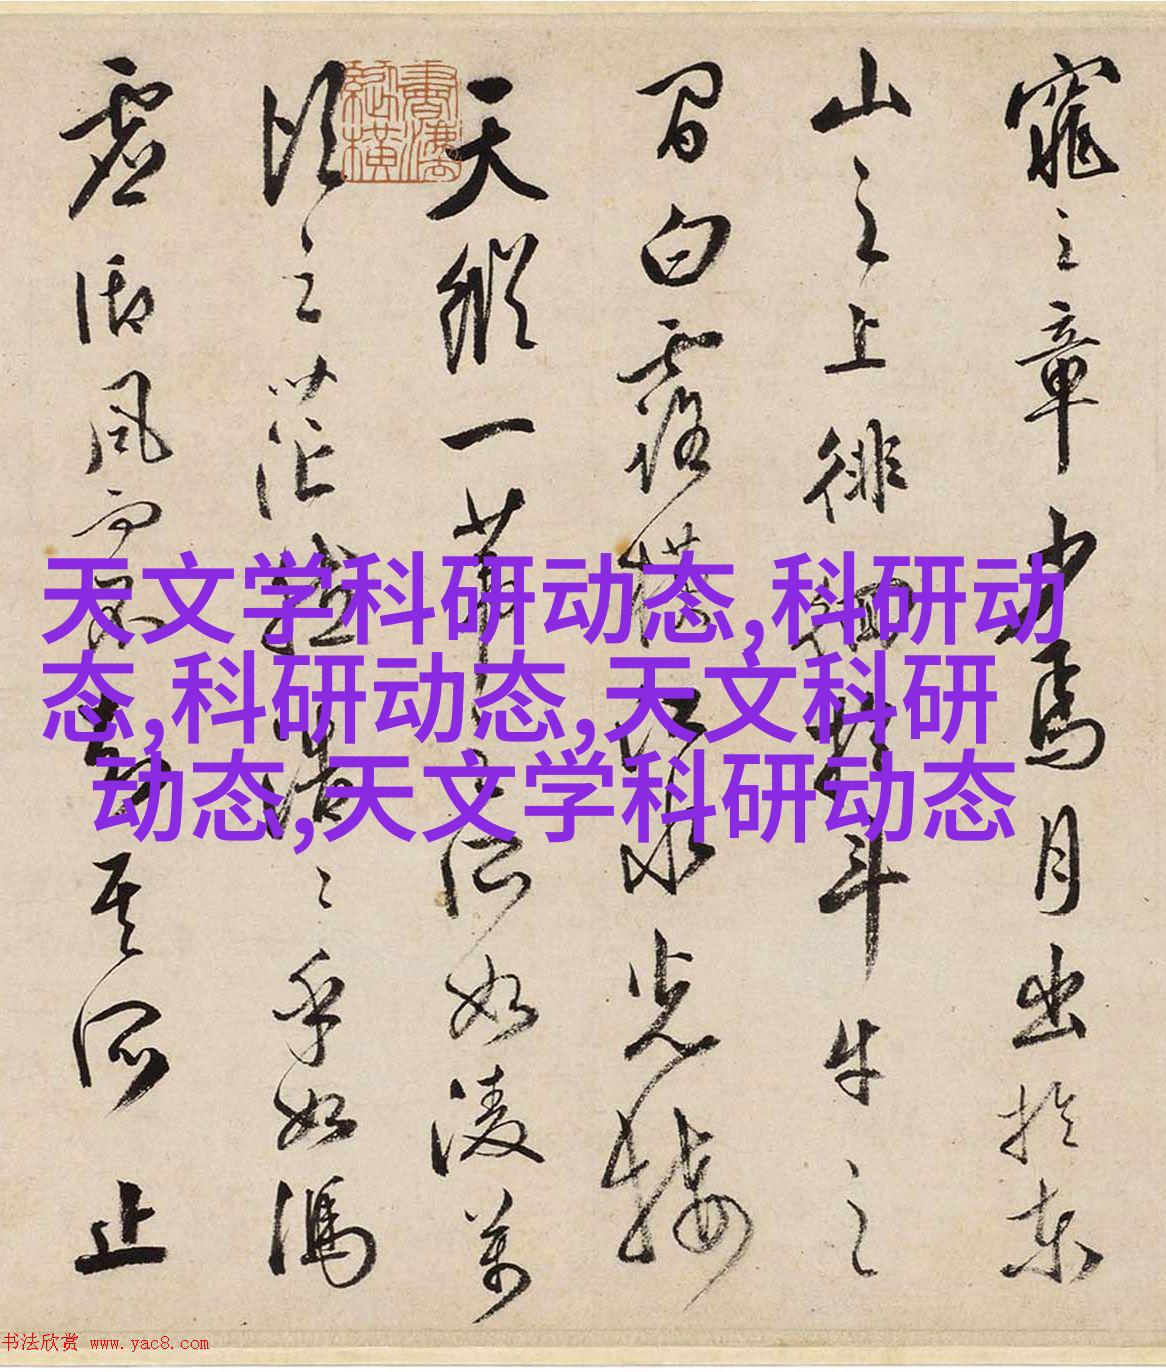 窕之章少焉月出於東
山之上徘徊於斗牛之
間白露橫江水光接
天縱一葦之所如陵萬
頃之茫然浩〻乎如馮
虛御風而不知其所止
天文学科研动态,科研动
态,科研动态,天文科研
动态,天文学科研动态
书法欣赏 www.yac8.com